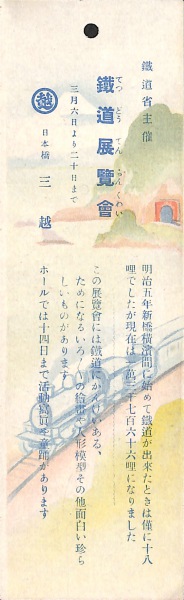 鐵道省主催
鐵道展覽會
てつどうてんらんくわい
三月六日より二十日まで
越
日本橋 三越
明治五年新橋橫濱間に始めて鐵道が出來たときは僅に十八
哩でしたが現在は一萬三千七百六十六哩になりました
この展覽會には鐵道にかんけいある、
ためになるいろ〳〵の繪畫や人形模型その他面白い珍ら
しいものがあります
ホールでは十四日まで活動寫眞や童踊があります